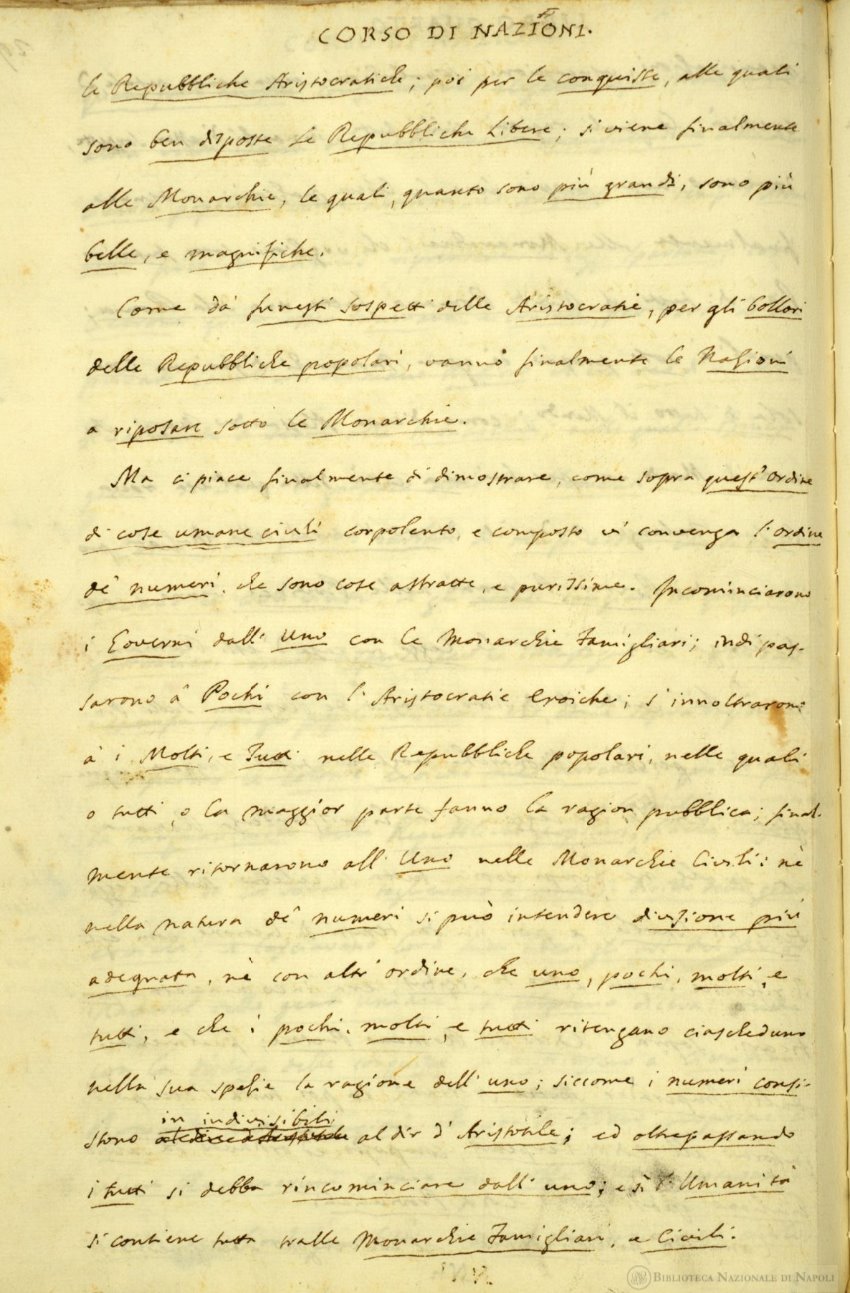 CORSO DI NAZIONI.
le Repubbliche Aristocratiche; poi per le conquiste, alle quali
sono ben disposte le Repubbliche Libere; si viene finalmente
alle Monarchie, le quali, quanto sono più grandi, sono più
belle, e magnifiche.
Come da' funesti sospetti delle Aristocratie, per gli bollori
delle Repubbliche popolari, vanno finalmente le Nazioni
a riposare sotto le Monarchie.
Ma ci piace finalmente di dimostrare, come sopra quest' Ordine
di cose umane civili corpolento, e composto vi convenga l' ordine
de' numeri, che sono cose astratte, e purissime. Incominciarono
i Governi dall' Uno con le Monarchie Famigliari; indi pas-
sarono a' Pochi con l' Aristocratie Eroiche; s' innoltrarono
a' i Molti, e Tutti nelle Repubbliche popolari, nelle quali
o tutti, o la maggior parte fanno la ragion pubblica; final-
mente ritornarono all' Uno nelle Monarchie Civili: nè
nella natura de' numeri si può intendere divisione più
adeguata, nè con altr' ordine, che uno, pochi, molti, e
tutti, e che i pochi, molti, e tutti ritengano ciascheduno
nella sua spezie la ragione dell' uno; siccome i numeri consi-
in indivisibili
stono al dir d' Aristotile; ed oltrepassando
i tutti si debba rincominciare dall' uno; e sì l' Umanità
si contiene tutta tralle Monarchie Famigliari, e Civili.
BIBLIOTECA NAZIONALE DI NAPOLI